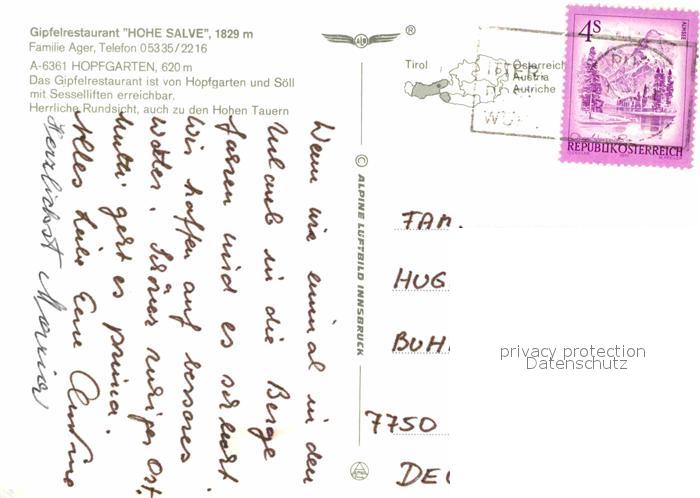 Gipfelrestaurant "HOHE SALVE", 1829 m
Familie Ager, Telefon 0 53 35 / 22 16
A-6361 HOPFGARTEN, 620 m
Das Gipfelrestaurant ist von Hopfgarten und Söll
mit Sesselliften erreichbar.
Herrliche Rundsicht, auch zu den Hohen Tauern
®
Tirol
Österreich
Austria
Autriche
4 S
REPUBLIK ÖSTERREICH
© ALPINE LUFTBILD INNSBRUCK
Wenn wir einmal in den
Urlaub in die Berge
faren wird es
Wir hoffen auf besseres
Wetter.
Mutti geht es prima.
Alles Liebe Eure
Herzlichst
FAM.
HUG
BUH
7750
DEU
privacy protection
Datenschutz